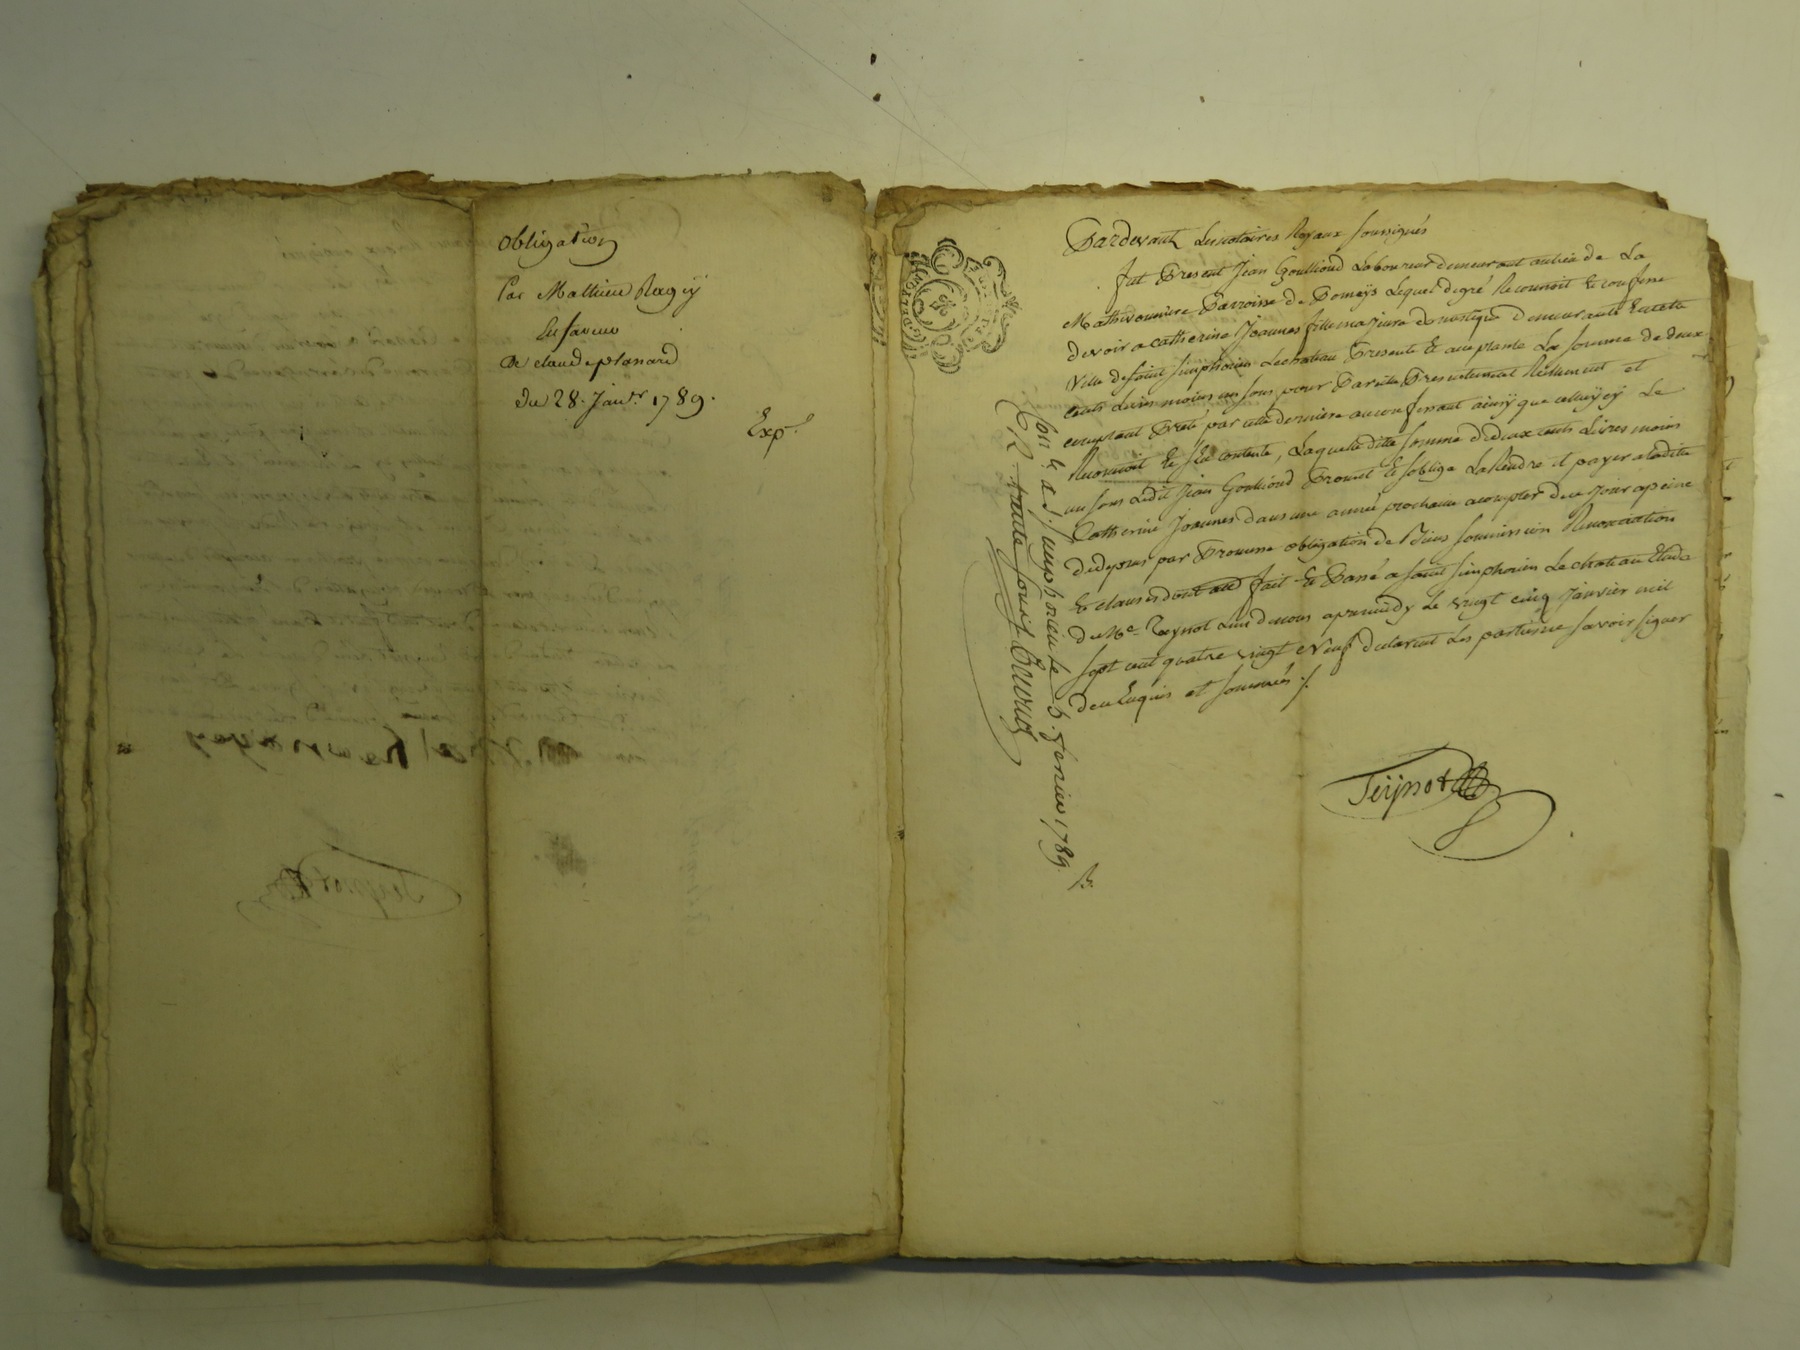 Obligation
Par Mathieu Ragey
En faveur
De claude planard
du 28. Janvr. 1789.
Exp.
Pardevant Les notaires Royaux soussignés
fut Present Jean Goullioud Laboureur demeurant au lieu de La
Mathivonniere Parroisse de Pomeys Lequel de gré Reconnoit Et confesse
devoir a catherine Joannes fille majeure domestique demeurante En cette
Ville de saint simphorien Lechateau Presente Et aceptante La somme de deux
cents Livres moins un sous pour Pareille Presentement Réellement et
comptant Preté par cette derniere au confessant ainsy que celluy cy Le
Reconnoit Et s'en contente, Laquelle ditte somme de deux cents Livres moins
un sous Ledit Jean Goullioud Promet Et s'oblige La Rendre et payer a laditte
Catherine Joannes dans une année prochaine a compter de ce Jour a peine
de depens par Promesse obligation de Biens soumission Renonciation
Et clauses dont acte fait Et Passé a saint simphorien Le chateau Etude
de Me. Teynot L'un de nous apremidy Le vingt cinq Janvier mil
sept cent quatre vingt Neuf declarent Les parties ne savoir signer
de ce Enquis et sommés ./.
Teijnot
Con. le a St. simphorien le 5. fevrier 1789.
R. trente sous